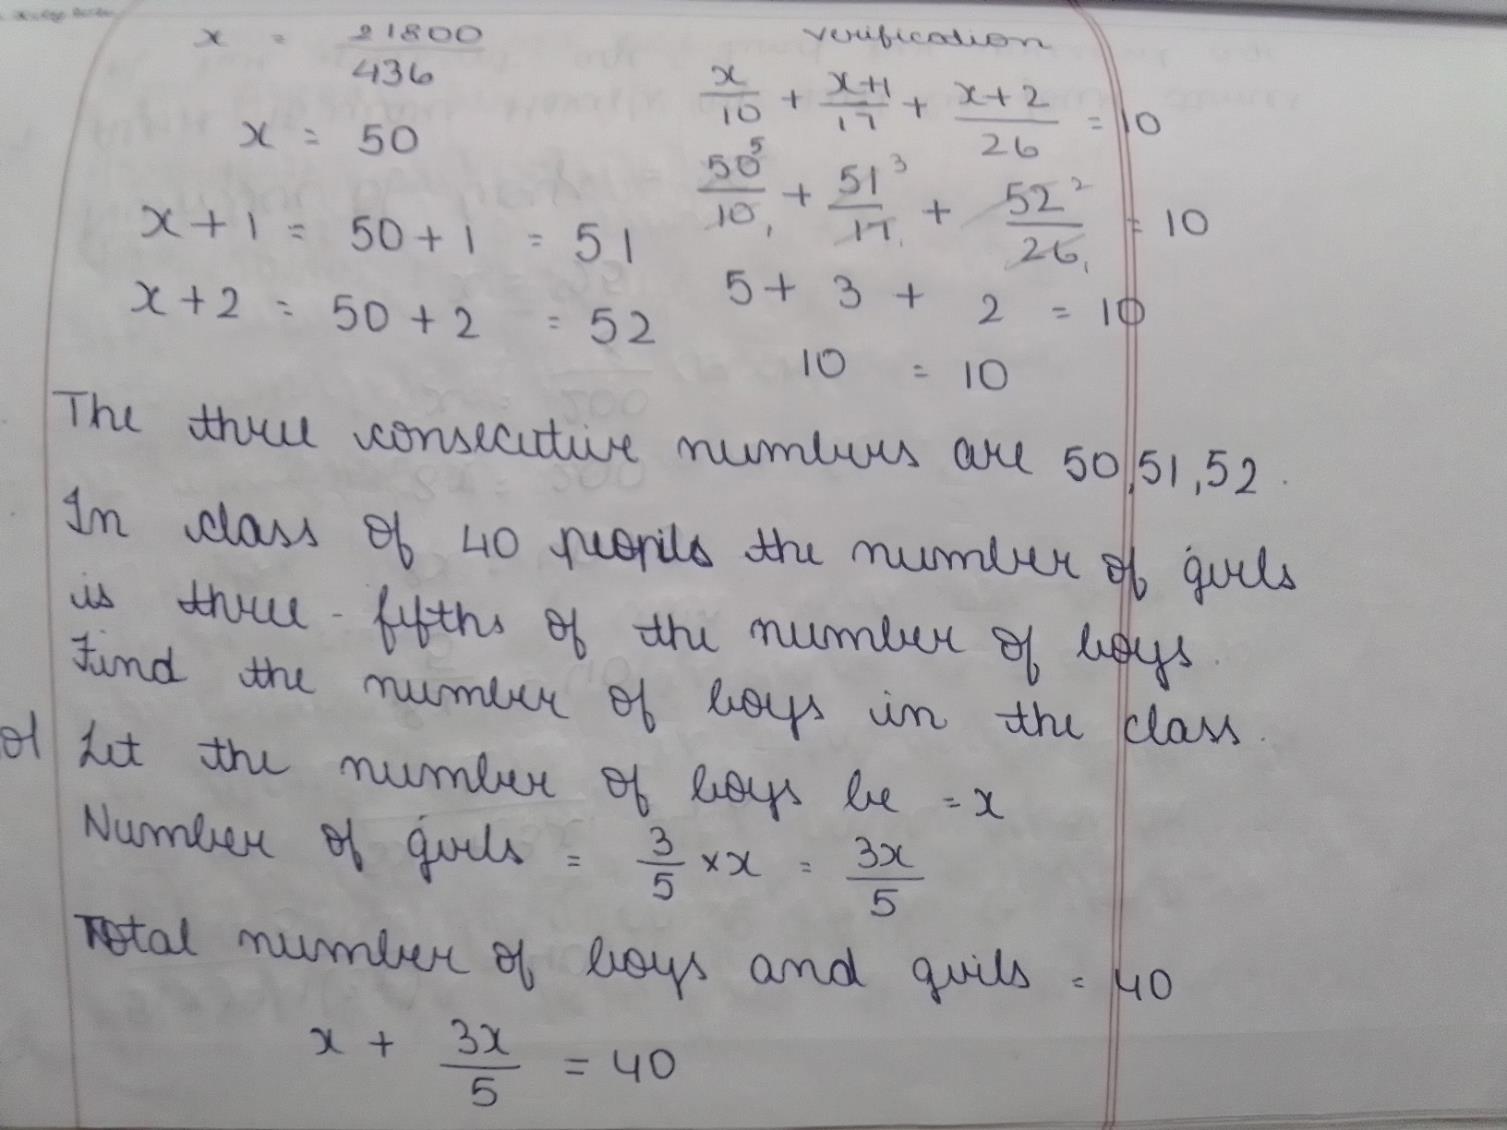 x = 21800/436
verification
x/10 + x+1/17 + x+2/26 = 10
x = 50
50⁵/10₁ + 51³/17₁ + 52²/26₁ = 10
x+1 = 50+1 = 51
5 + 3 + 2 = 10
x+2 = 50+2 = 52
10 = 10
The three consecutive numbers are 50,51,52.
In class of 40 the number of girls
is three-fifths of the number of boys.
Find the number of boys in the class.
ol Let the number of boys be = x
Number of girls = 3/5 × x = 3x/5
Total number of boys and girls = 40
x + 3x/5 = 40